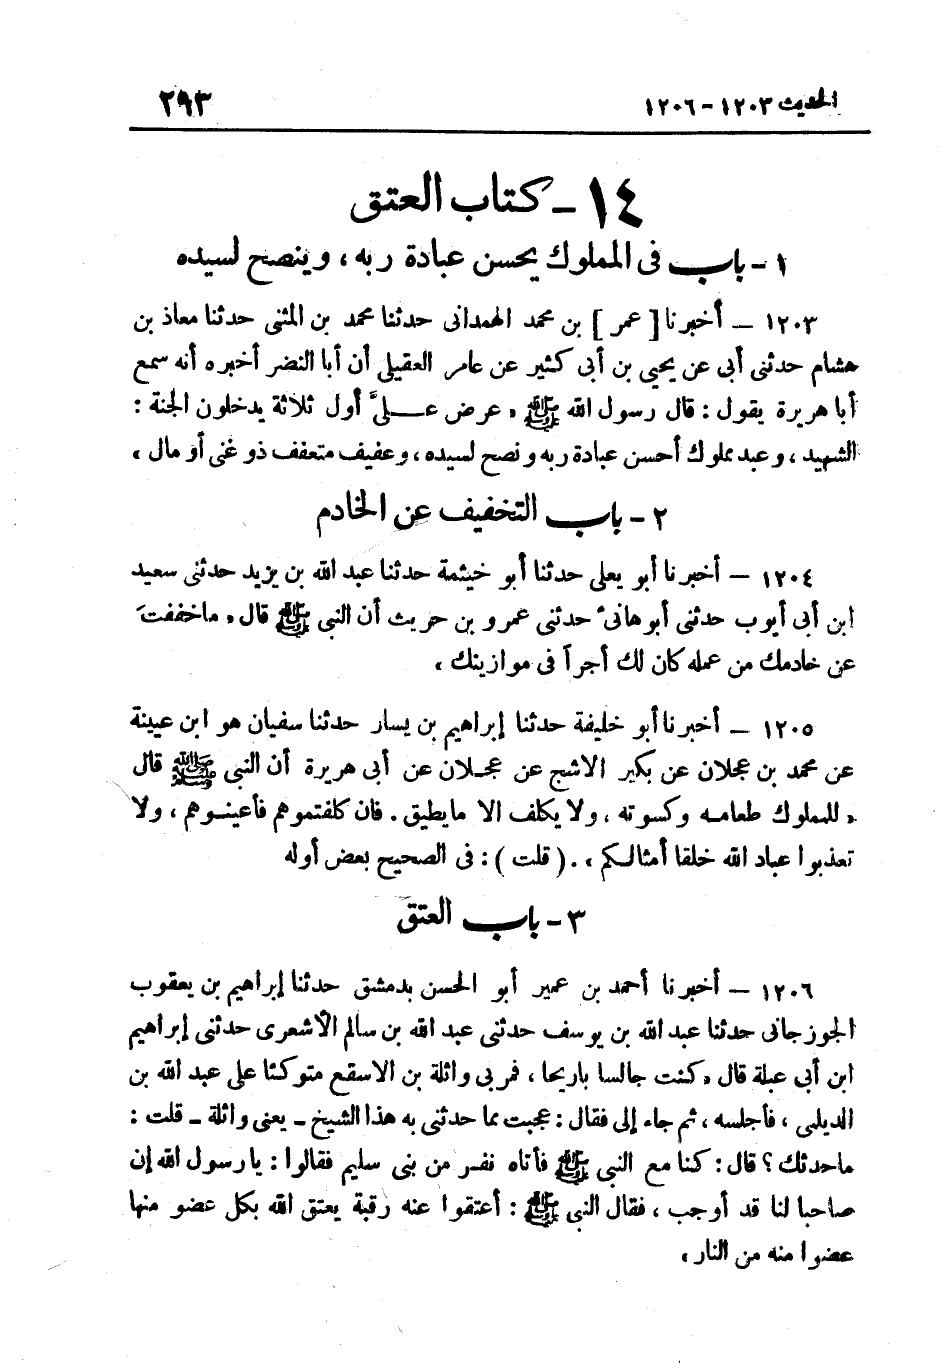 الحديث ١٢٠٣ - ١٢٠٦ ٢٩٣
١٤ - كتاب العتق
١ - باب فى المملوك يحسن عبادة ربه ، وينصح لسيده
١٢٠٣ - أخبرنا [ عمر ] بن محمد الهمدانى حدثنا محمد بن المثنى حدثنا معاذ بن
هشام حدثنى أبى عن يحيى بن أبى كثير عن عامر العقيلى أن أبا النضر أخبره أنه سمع
أبا هريرة يقول : قال رسول الله ﷺ « عرض علىَّ أول ثلاثة يدخلون الجنة :
الشهيد ، وعبد مملوك أحسن عبادة ربه ونصح لسيده ، وعفيف متعفف ذو غنى أو مال »
٢ - باب التخفيف عن الخادم
١٢٠٤ - أخبرنا أبو يعلى حدثنا أبو خيثمة حدثنا عبد الله بن يزيد حدثنى سعيد
ابن أبى أيوب حدثنى أبو هانئ حدثنى عمرو بن حريث أن النبى ﷺ قال « ما خففتَ
عن خادمك من عمله كان لك أجراً فى موازينك »
١٢٠٥ - أخبرنا أبو خليفة حدثنا إبراهيم بن يسار حدثنا سفيان هو ابن عيينة
عن محمد بن عجلان عن بكير الاشج عن عجلان عن أبى هريرة أن النبى ﷺ قال
« للمملوك طعامه وكسوته ، ولا يكلف الا ما يطيق . فان كلفتموهم فأعينوهم ، ولا
تعذبوا عباد الله خلقا أمثالكم » . ( قلت ) : فى الصحيح بعض أوله
٣ - باب العتق
١٢٠٦ - أخبرنا أحمد بن عمير أبو الحسن بدمشق حدثنا إبراهيم بن يعقوب
الجوزجانى حدثنا عبد الله بن يوسف حدثنى عبد الله بن سالم الأشعرى حدثنى إبراهيم
ابن أبى عبلة قال « كنت جالسا باريحا ، فمر بى واثلة بن الاسقع متوكئا على عبد الله بن
الديلمى ، فأجلسه ، ثم جاء إلى فقال : عجبت مما حدثنى به هذا الشيخ - يعنى واثلة - قلت :
ما حدثك ؟ قال : كنا مع النبى ﷺ فأتاه نفر من بنى سليم فقالوا : يا رسول الله إن
صاحبا لنا قد أوجب ، فقال النبى ﷺ : أعتقوا عنه رقبة يعتق الله بكل عضو منها
عضوا منه من النار »